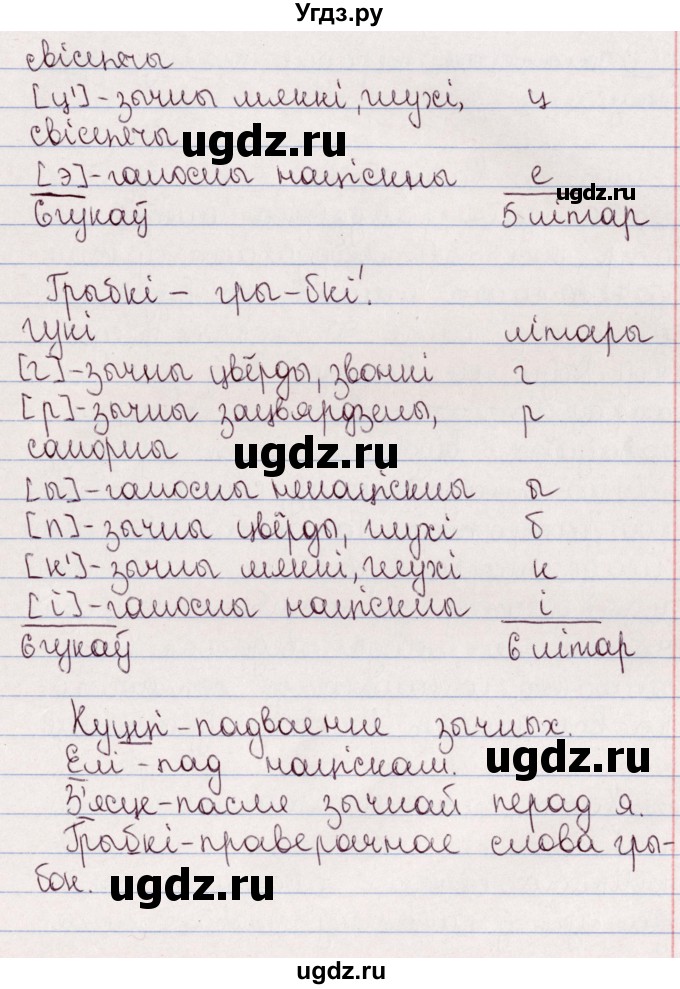 Угдз.ру
свісцячы
[ц']-зычны мяккі, глухі, ц
свісцячы
ugdz.ru
[э]-галосны націскны е
ugdz.ru
6 гукаў 5 літар
Грыбкі - гры-бкі́.
гукі літары
[г]-зычны цвёрды, звонкі г
[р]-зычны зацвярдзелы, р
санорны
ugdz.ru
[ы]-галосны ненаціскны ы
[п]-зычны цвёрды, глухі б
[к']-зычны мяккі, глухі к
[і]-галосны націскны і
6 гукаў 6 літар
падваенне зычных.
Елі-пад націскам.
ugdz.ru
З'ясце-пасля зычнай перад я.
Грыбкі-праверачнае слова гры-
бок.
ugdz.ru
ugdz.ru